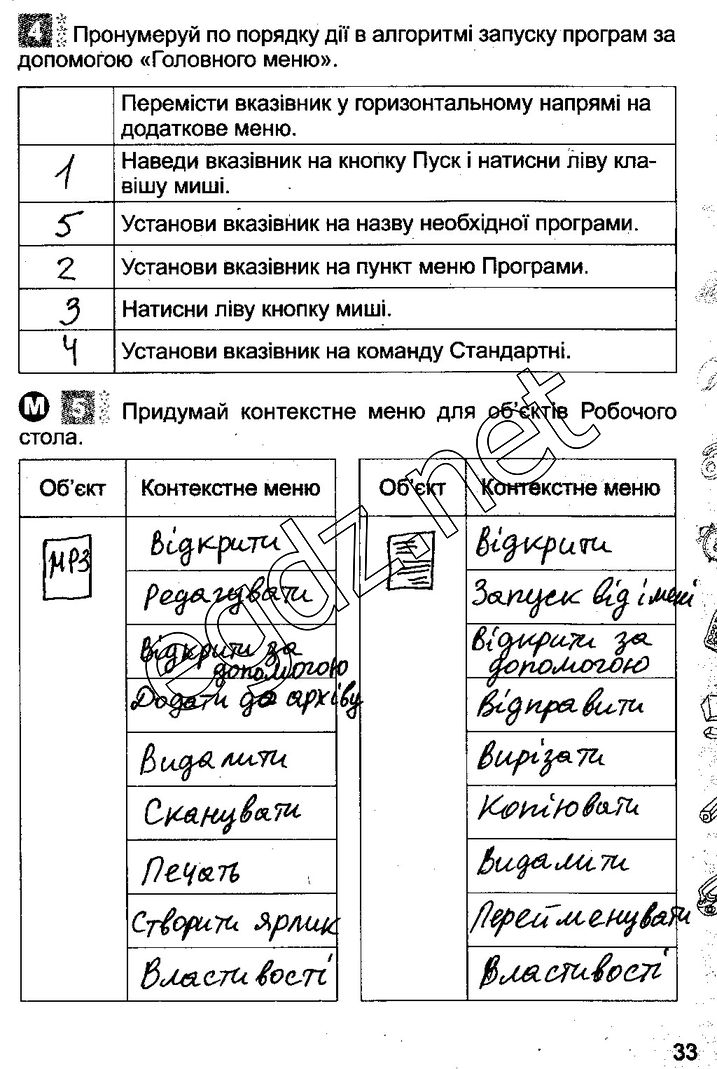 4 Пронумеруй по порядку дії в алгоритмі запуску програм за
допомогою «Головного меню».
Перемісти вказівник у горизонтальному напрямі на
додаткове меню.
1 Наведи вказівник на кнопку Пуск і натисни ліву кла-
вішу миші.
5 Установи вказівник на назву необхідної програми.
2 Установи вказівник на пункт меню Програми.
3 Натисни ліву кнопку миші.
4 Установи вказівник на команду Стандартні.
М 5 Придумай контекстне меню для об'єктів Робочого
стола.
Об'єкт Контекстне меню
МР3 Відкрити
Редагувати
Відкрити за
допомогою
Додати до архіву
Видалити
Сканувати
Печать
Створити ярлик
Властивості
Об'єкт Контекстне меню
Відкрити
Запуск від імені
Відкрити за
допомогою
Відправити
Вирізати
Копіювати
Видалити
Перейменувати
Властивості
egdz.net
33